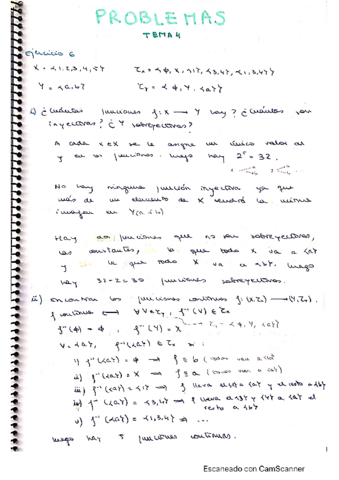 PROBLEMAS
TEMA 4
Ejercicio 6
X = {1,2,3,4,5} τx = {ϕ, X, {1}, {3,4}, {1,3,4}}
Y = {a,b} τY = {ϕ, Y, {a}}
i) ¿Cuántas funciones f: X → Y hay? ¿Cuántas son
inyectivas? ¿Y sobreyectivas?
A cada x∈X se le asigna un único valor de
Y en las funciones. Luego hay 2⁵ = 32.
No hay ninguna función inyectiva ya que
más de un elemento de X tendrá la misma
imagen en Y
Hay dos funciones que no son sobreyectivas,
las constantes, la que todo X va a {a}
y la que todo X va a {b}. Luego
hay 32-2=30 funciones sobreyectivas.
ii) Encontrar las funciones continuas f: (X,τx) → (Y,τY).
f continua ⟺ ∀V∈τY, f⁻¹(V) ∈ τx
f⁻¹(ϕ) = ϕ, f⁻¹(Y) = X τY = {ϕ, Y, {a}}
V = {a}, f⁻¹({a}) ∈ τx si:
i) f⁻¹({a}) = ϕ ⟹ f ≡ b
ii) f⁻¹({a}) = X ⟹ f ≡ a
iii) f⁻¹({a}) = {1} ⟹ f lleva el {1} a {a} y el resto a {b}
iv) f⁻¹({a}) = {3,4} ⟹ f lleva a {3} y {4} a {a} el
resto a {b}
v) f⁻¹({a}) = {1,3,4} ⟹ ...
Luego hay 5 funciones continuas.
Escaneado con CamScanner